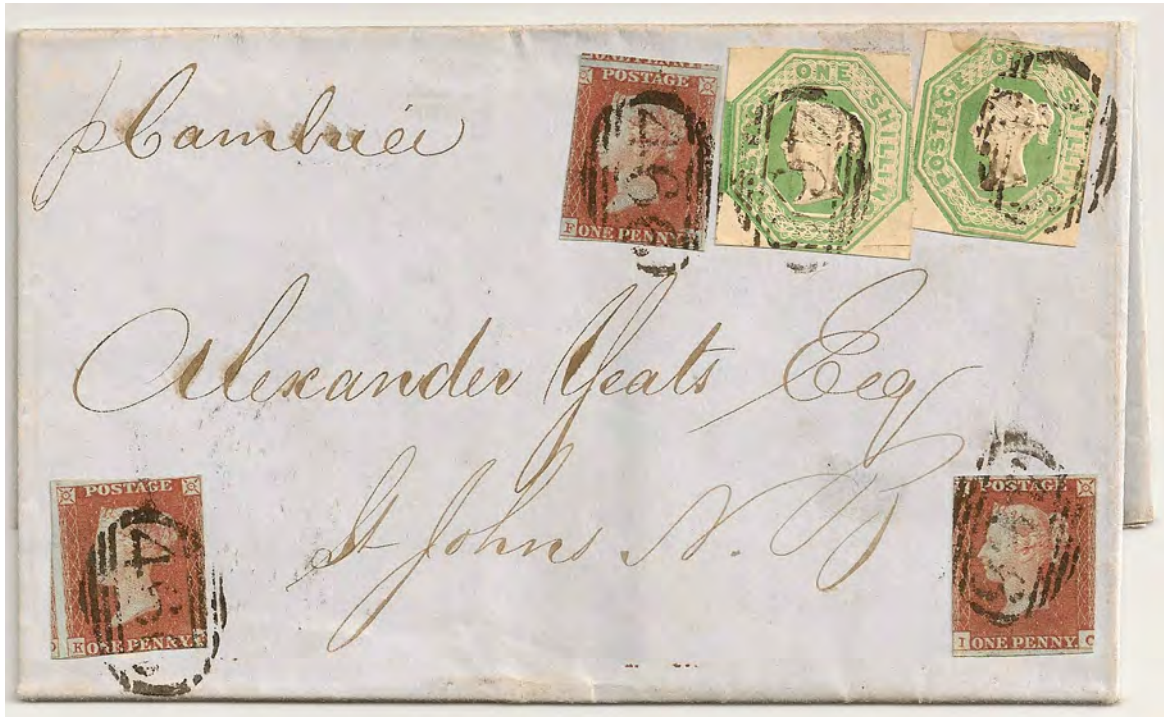 p Cambria
POSTAGE
F ONE PENNY
466
POSTAGE ONE SHILLING
POSTAGE ONE SHILLING
Alexander Yeats Esq
St Johns N. B
POSTAGE
K ONE PENNY
POSTAGE
I ONE PENNY C